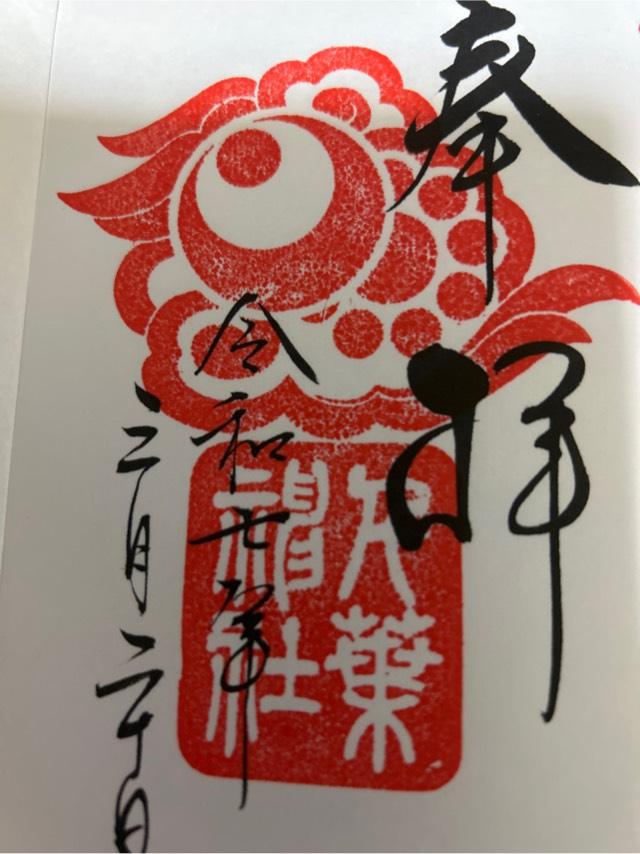 奉拝
千葉
神社
令和七年
三月二十日